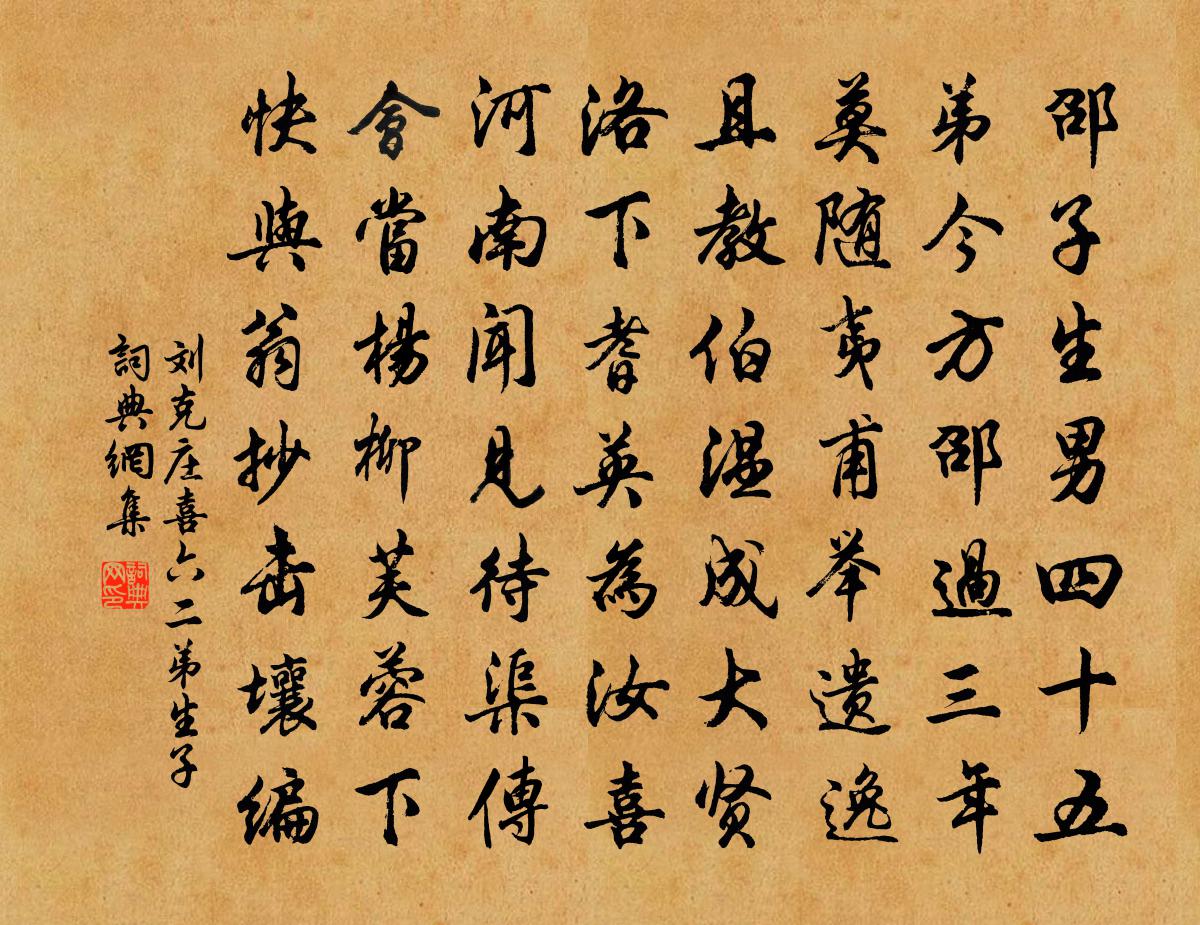 邵子生男四十五
弟今方邵過三年
莫随夷甫举遗逸
且教伯温成大贤
洛下耆英為汝喜
河南聞見待渠傳
會當楊柳芙蓉下
快與翁抄击壤编
刘克庄喜六二弟生子
詞典網集
詞典网印